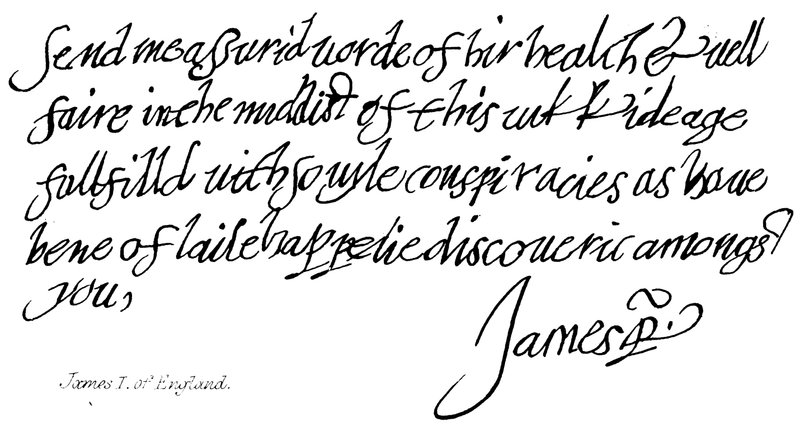 Send me assurid worde of hir health & well
faire in the middist of this wikkid eage
fullfilld with so uyle conspiracies as haue
bene of laite happelie discouerit amongst
you,
James R.
James I. of England.